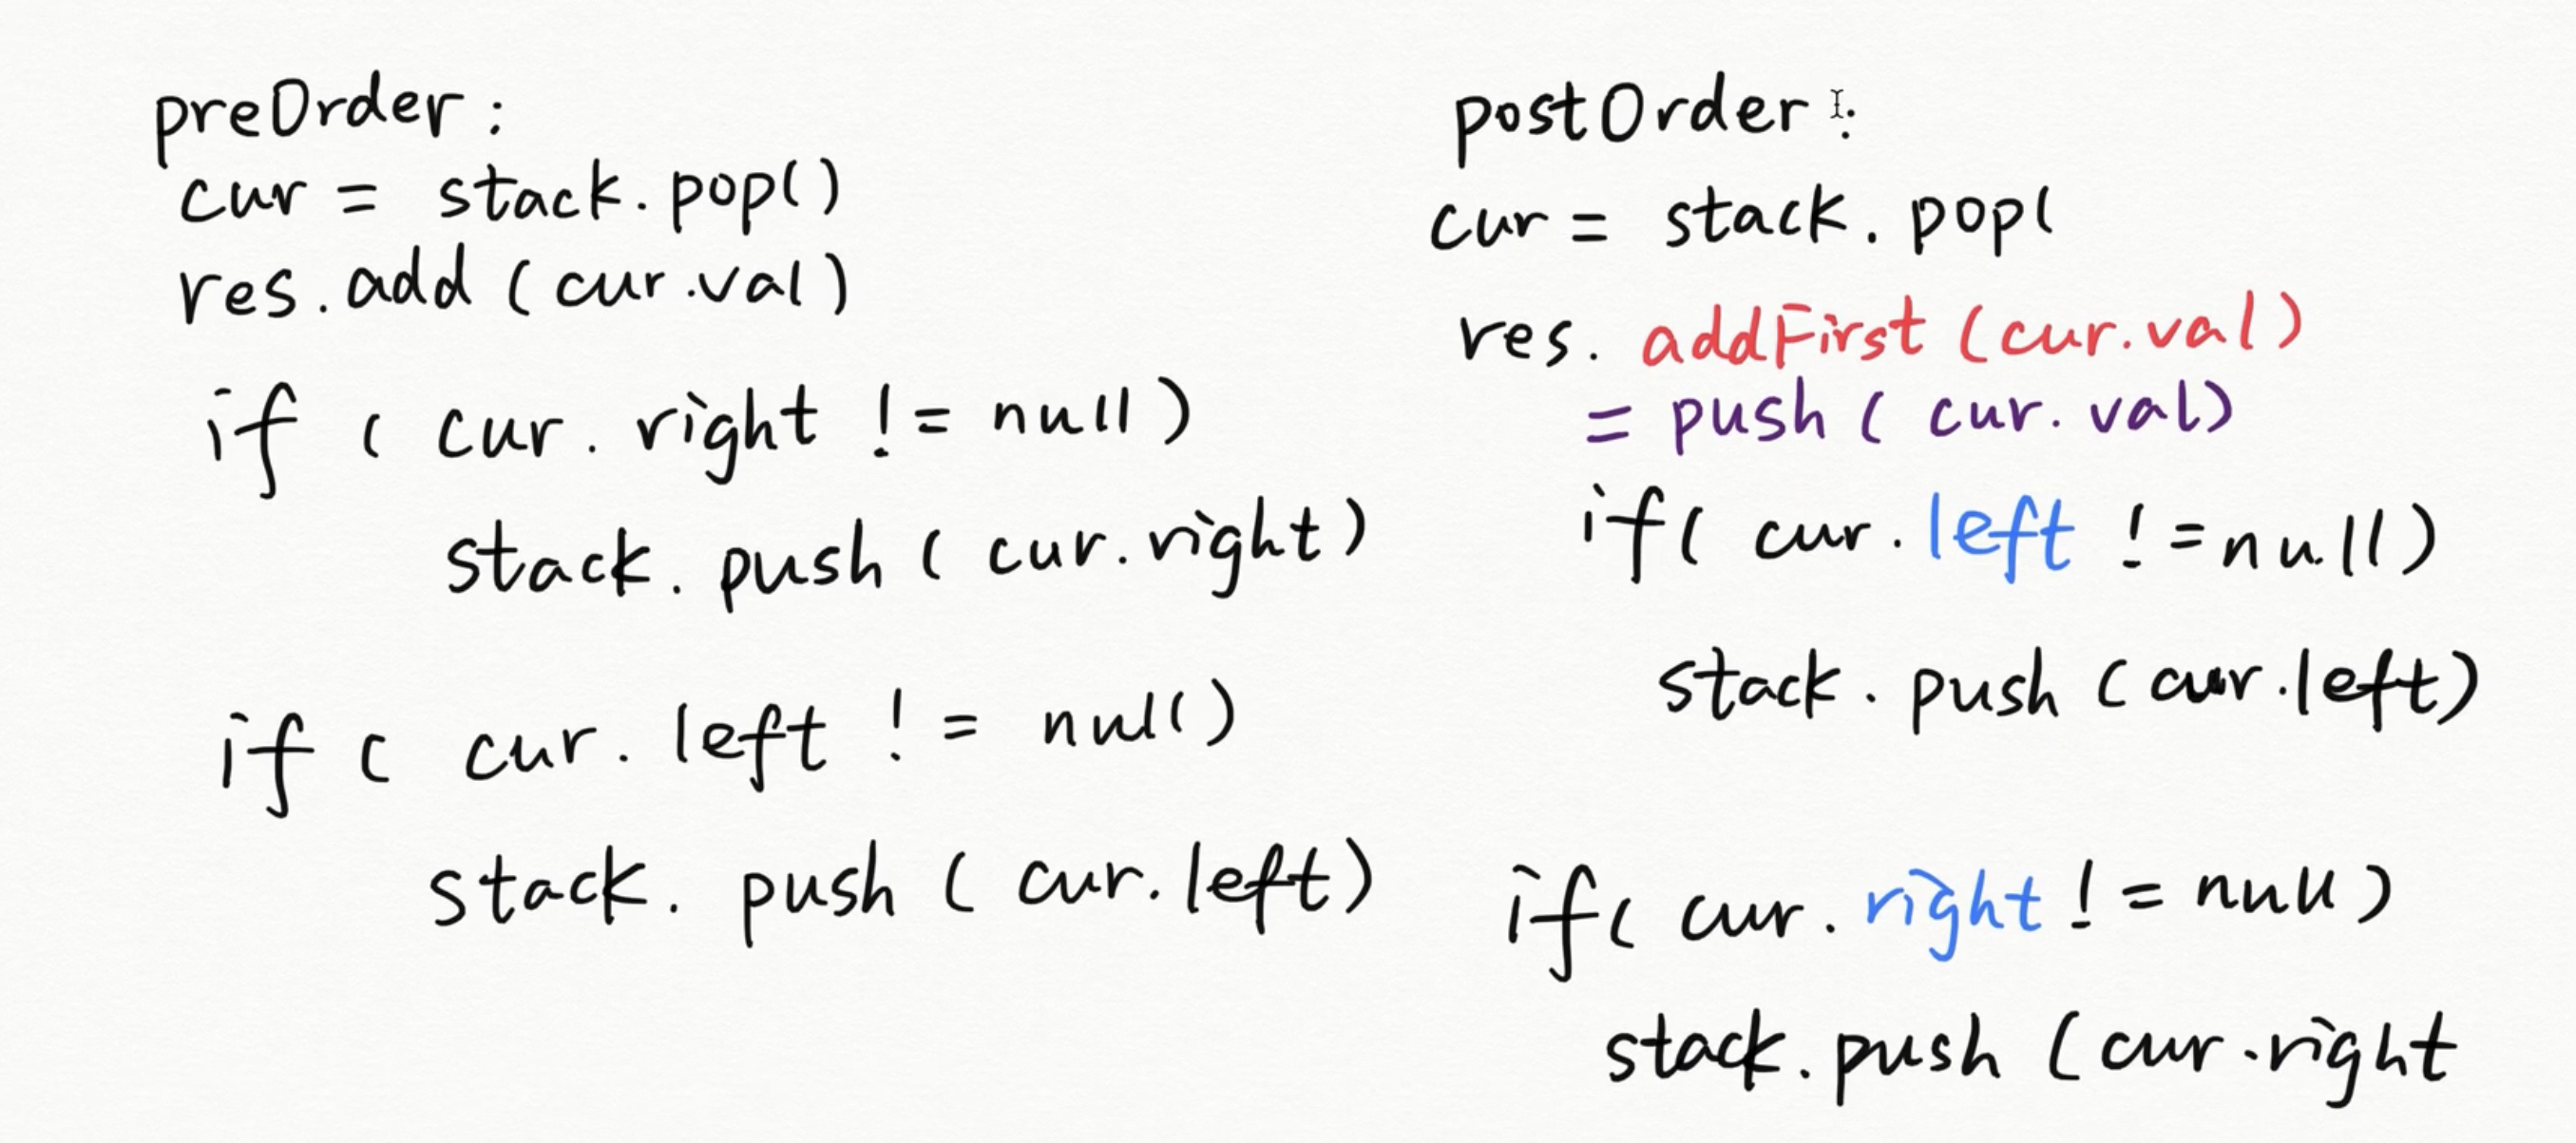 preOrder:
cur = stack.pop()
res.add (cur.val)
if ( cur.right != null)
stack.push ( cur.right)
if ( cur.left != null)
stack.push ( cur.left)
postOrder:
cur = stack.pop(
res. addFirst (cur.val)
= push ( cur.val)
if( cur.left != null)
stack.push (cur.left)
if( cur.right != null)
stack.push (cur.right